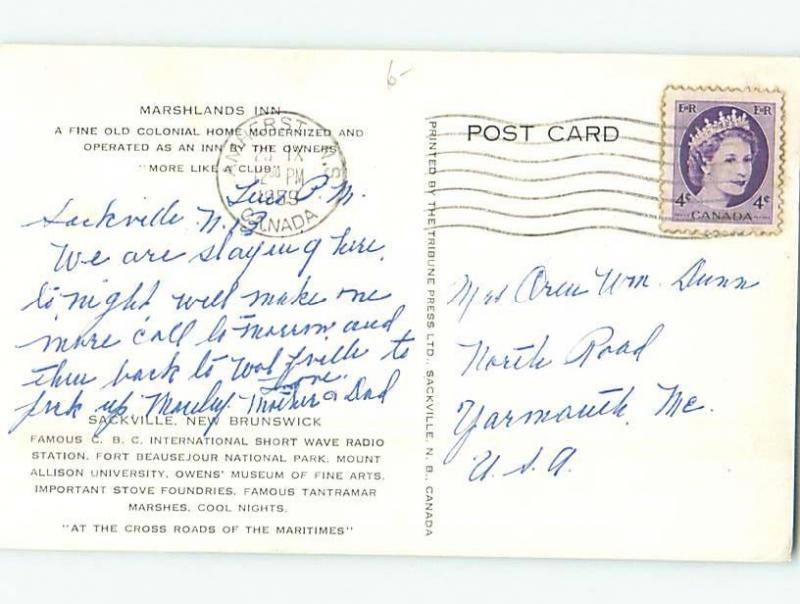 6-
MARSHLANDS INN
A FINE OLD COLONIAL HOME MODERNIZED AND
OPERATED AS AN INN BY THE OWNERS
"MORE LIKE A CLUB"
AMHERST N.S.
IX
PM
1959
CANADA
Tues P.M.
Sackville N.B.
We are staying here
to night will make one
more call to-morrow and
then back to Wolfville to
pick up
Love.
Mother & Dad
SACKVILLE, NEW BRUNSWICK
FAMOUS C. B. C. INTERNATIONAL SHORT WAVE RADIO
STATION, FORT BEAUSEJOUR NATIONAL PARK, MOUNT
ALLISON UNIVERSITY, OWENS' MUSEUM OF FINE ARTS,
IMPORTANT STOVE FOUNDRIES, FAMOUS TANTRAMAR
MARSHES, COOL NIGHTS.
"AT THE CROSS ROADS OF THE MARITIMES"
PRINTED BY THE TRIBUNE PRESS LTD., SACKVILLE, N. B., CANADA
POST CARD
E II R E II R
4¢ 4¢
CANADA
Mrs Oren Wm. Dunn
North Road
Yarmouth, Me.
U.S.A.